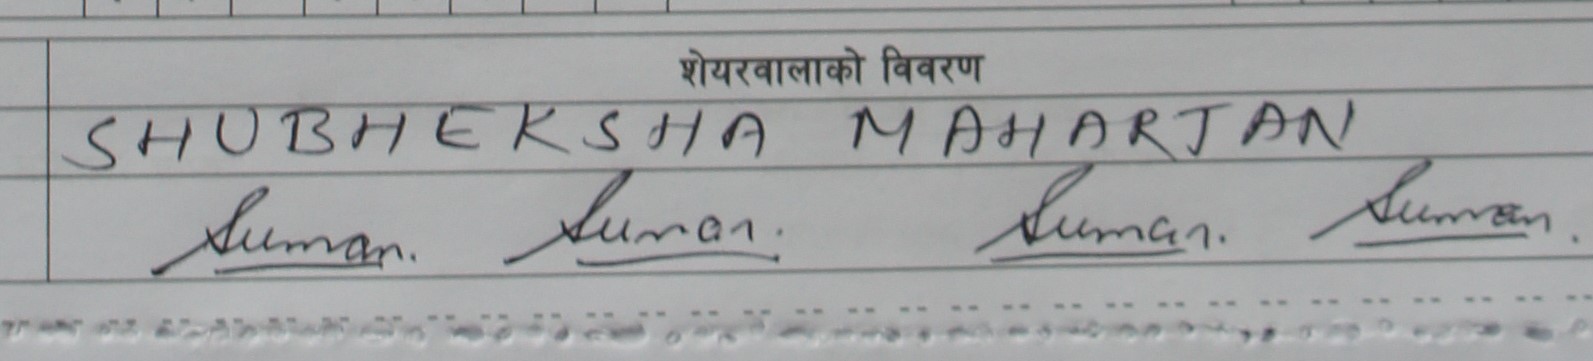 शेयरवालाको विवरण
SHUBHEKSHA MAHARJAN
Suman. Suman. Suman. Suman.